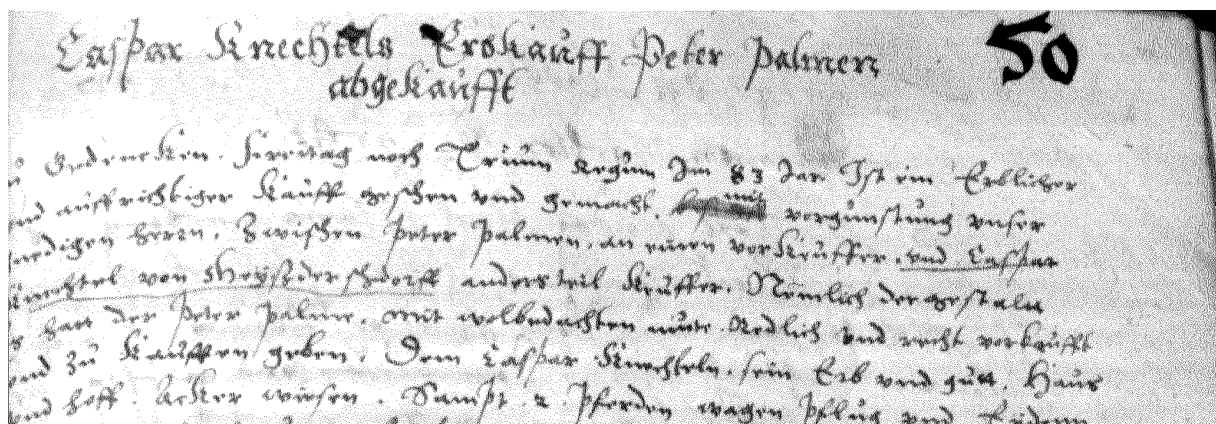 Caspar Knechtels Erbkauff Peter Palmen 50
abgekaufft
Zu Gedencken. Freitag noch Trium Regum Im 83 Jar. Ist ein Erblicher
und auffrichtiger Kauff geschen vnd gemacht. mit vorgunstung vnser
gnedigen herrn. Zwischen Peter Palmen. an einen vorKeuffer. vnd Caspar
Knechtel von andersteil Keuffer. Nemlich dergestaln
hatt der Peter Palme. mit wolbedachten mute. Redlich vnd recht vorkaufft
vnd zu Kauffen geben. Dem Caspar Knechteln. sein Erb vnd gutt. Haus
vnd hoff. AcKer wiesen. Sampt. 2. Pferden wagen Pflug vnd